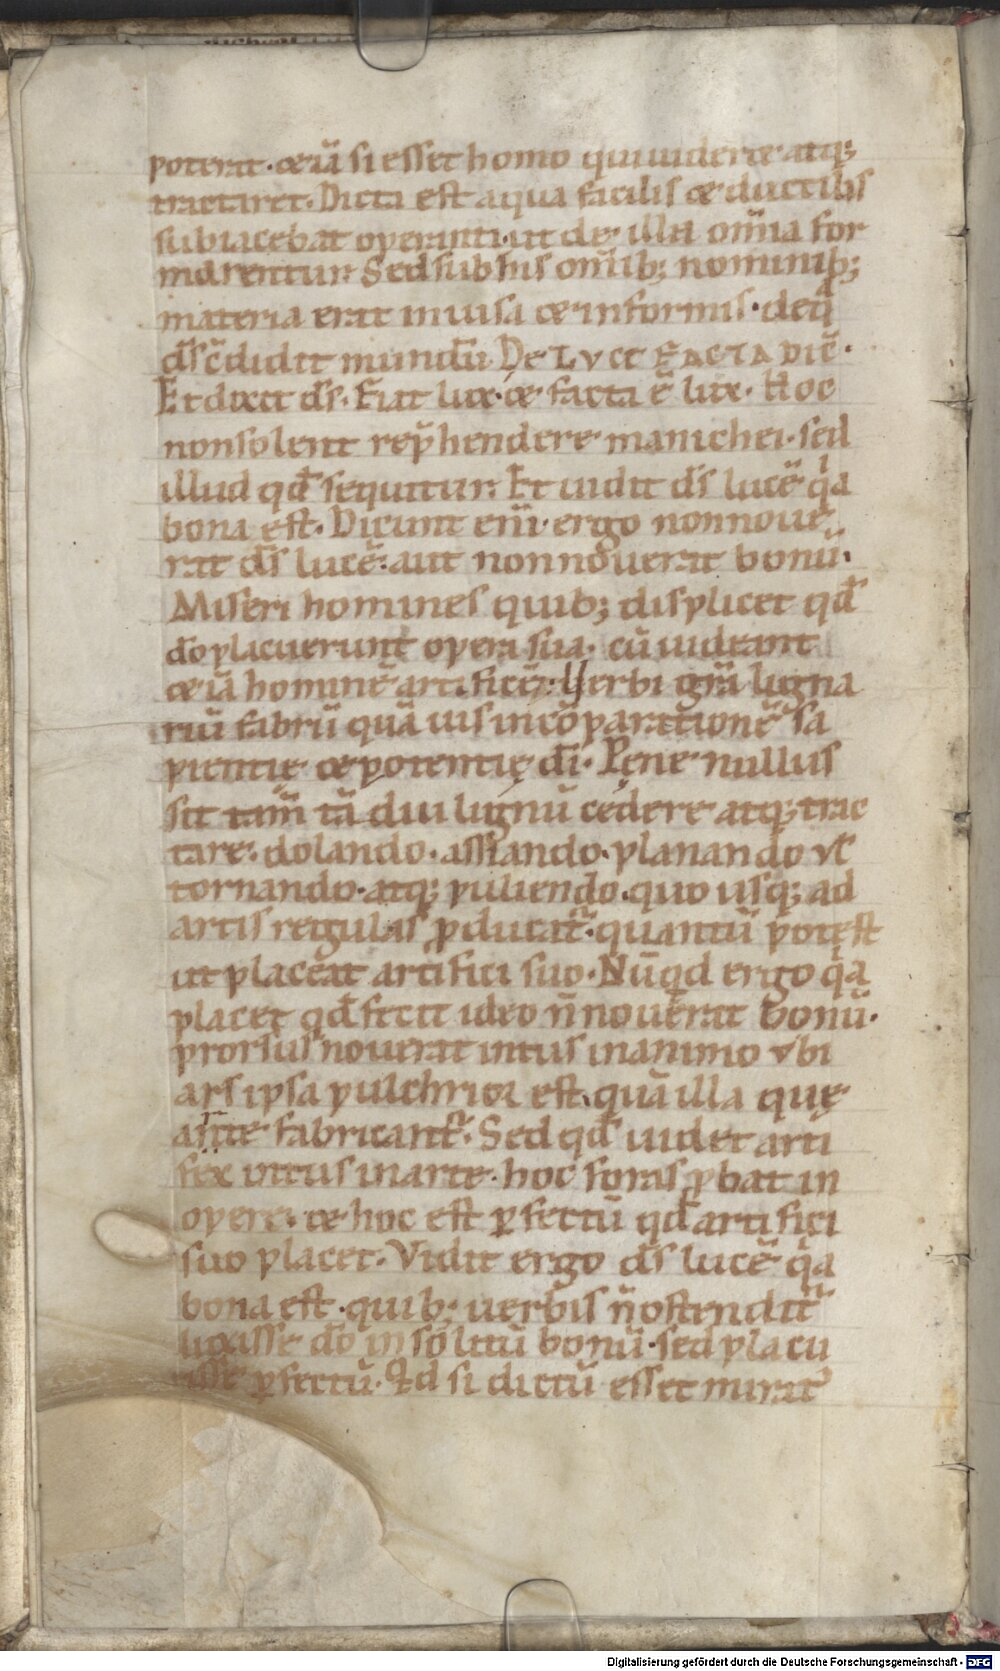 poterat. &iā si esset homo qui uider& atq;
tractaret. Dicta est aqua facilis & ductilis
subiacebat operanti. ut de illa om̅ia for
marentur. Sed sub his om̅ib; nominib;
materia erat inuisa & informis. de q̅
ds̅ c̅didit mundū. De LVce FACTA DIE̅.
Et dixit ds̅. Fiat lux. & facta ē lux. Hoc
non solent rep̄hendere manichei. sed
illud qd̅ sequitur. Et uidit ds̅ lucē qͥa
bona est. Dicunt eni̅. ergo non noue
rat ds̅ lucē. aut non nouerat bonū.
Miseri homines quib; displicet qd̅
do̅ placuerunt opera sua. cū uideant
&iā hominē artificē. Verbi gr̅a ligna
riū fabrū quāuis in cōparationē sa
pientię & potentię di̅. Pene nullus
sit tam̅ tā diu lignū cedere atq; trac
tare. dolando. assiando. planando ul̅
tornando. atq; puliendo. quo usq; ad
artis regulas p̱ducat̅. quantū potest
ut placeat artifici suo. Nūqd ergo qͥa
placet qd̅ fecit ideo n̅ nouerat bonū.
prorsus nouerat intus in animo ubi
ars ipsa pulchrior est. quā illa quę
arte fabricant̅. Sed qd̅ uidet arti
fex intus in arte. hoc foras p̱bat in
opere. & hoc est ꝑfectū qd̅ artifici
suo placet. Vidit ergo ds̅ lucē qͥa
bona est. quib; uerbis n̅ ostendit̅
luxisse do̅ insolitū bonū. sed placu
isse ꝑfectū. Id si dictū esset mirat̅
Digitalisierung gefördert durch die Deutsche Forschungsgemeinschaft - DFG